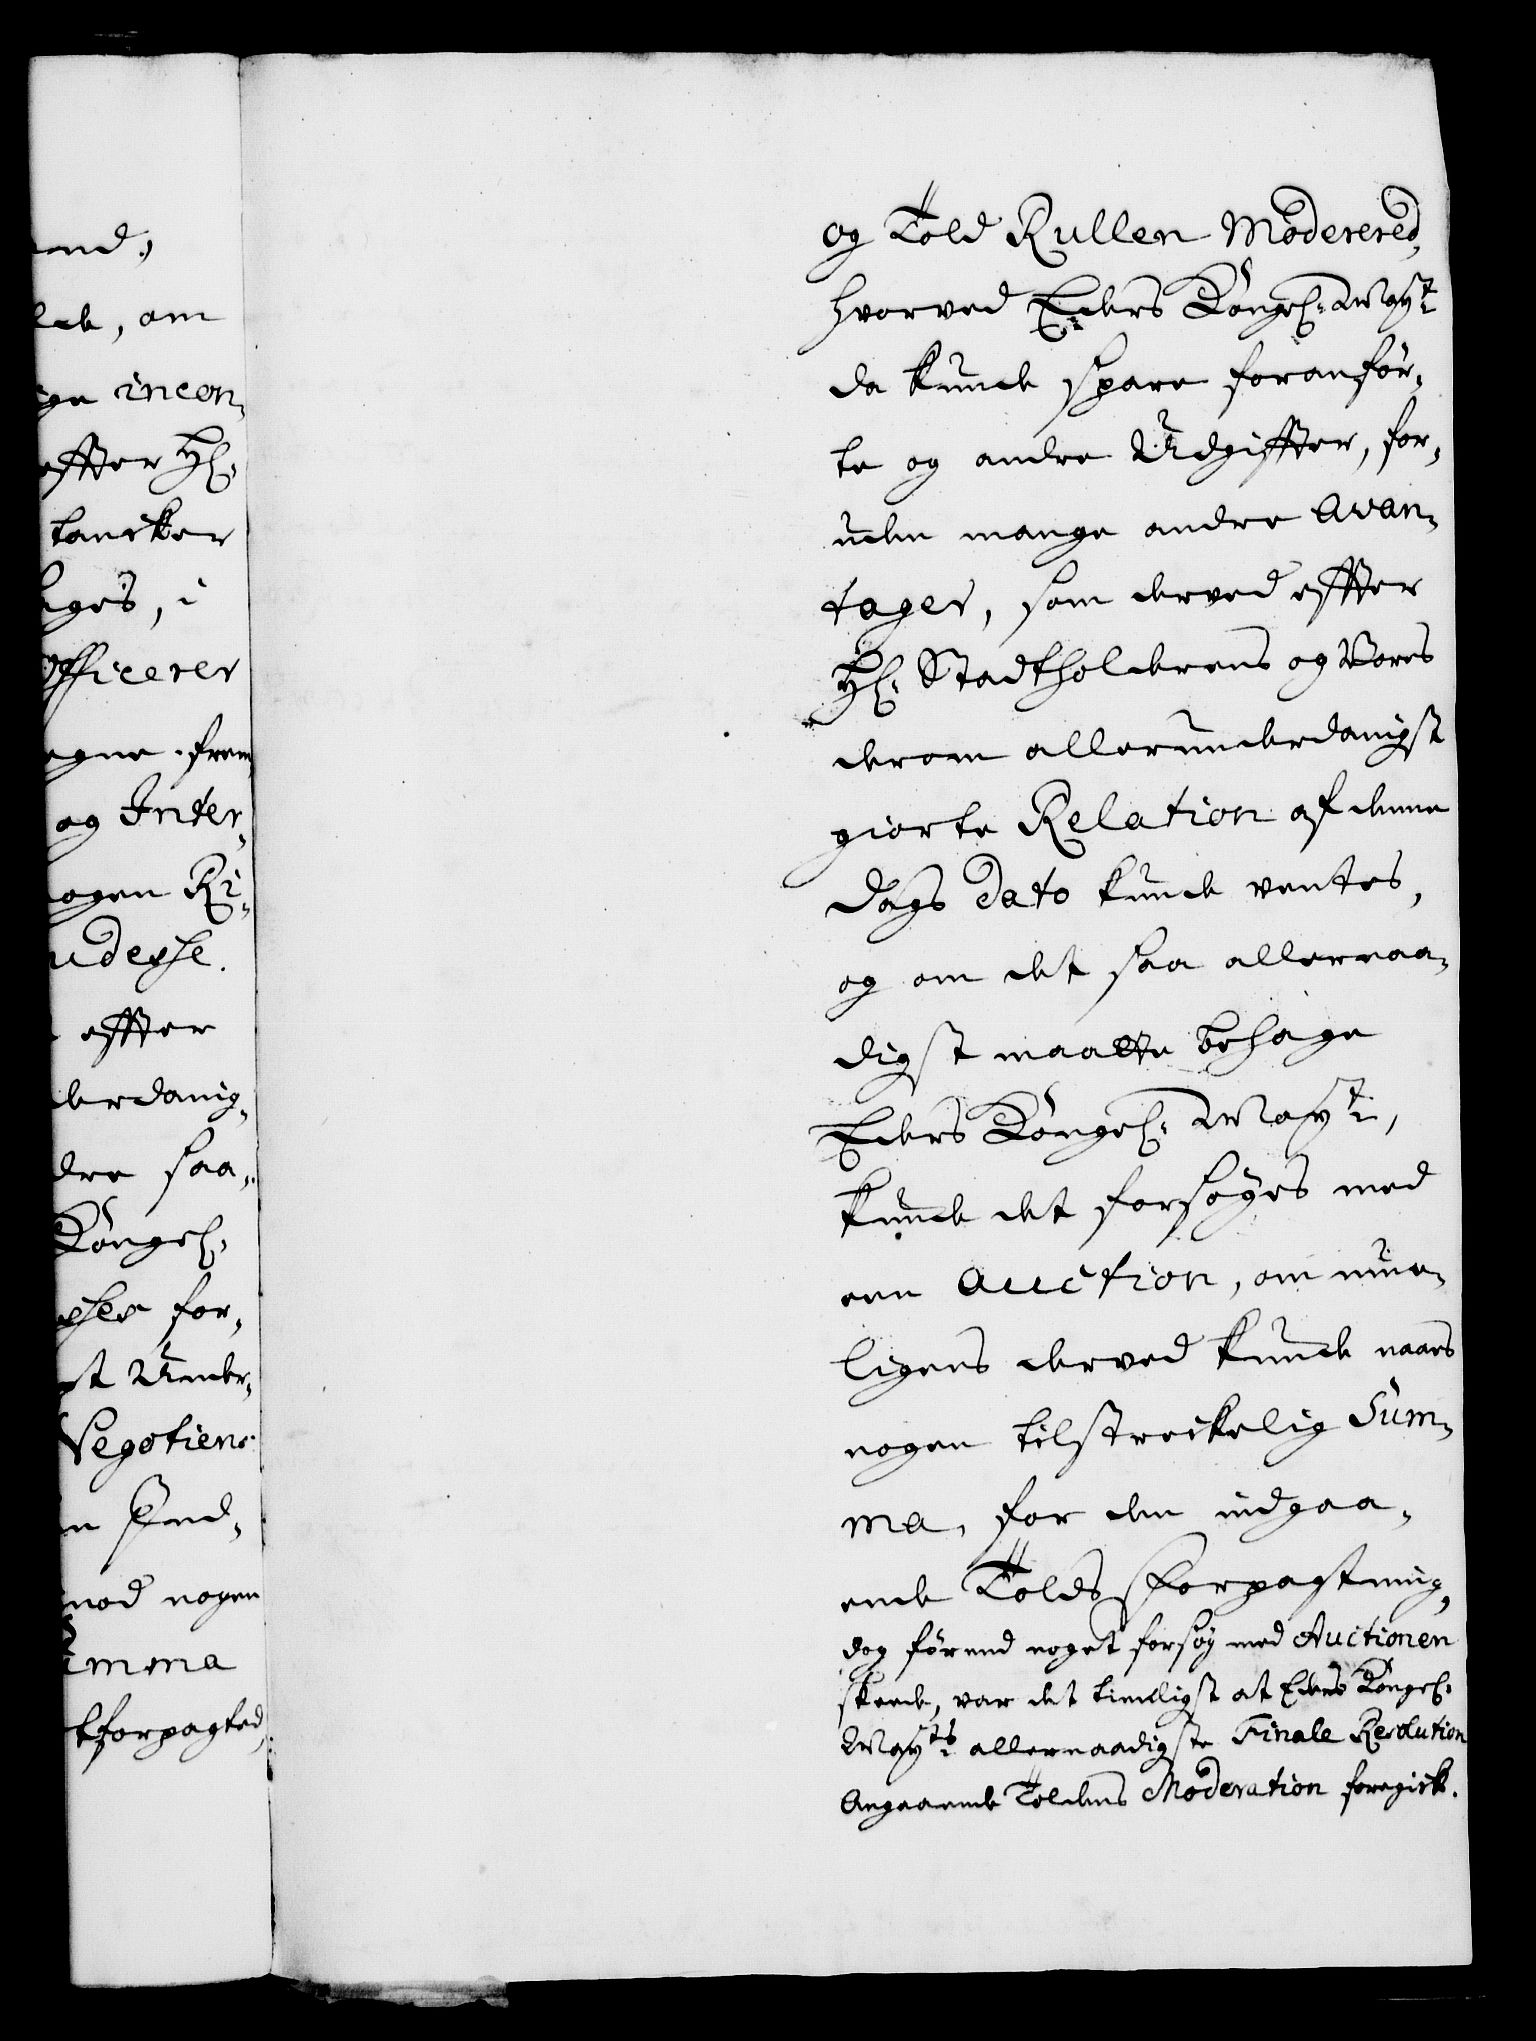 end,
lde, om
ge incon¬
effter H:
tancker
ages, i
Officerer
egne frem
og Inter¬
ogen Ri¬
udesse.
effter
derdanig¬
dre saa¬
Kongel:
for¬
st Under¬
Negotiens
n Ind¬
mod nogen
umma
tforpagted,
og Told Rullen Moderered,
hvorved Eders Kongel: Mayt:
da kunde spare foranför¬
te og andre Udgiffter, for¬
uden mange andre Avan¬
tager, som derved effter
H: Stadtholderens og Vores
derom allerunderdanigst
giorte Relation af denne
dags dato kunde ventes,
og om det saa allernaa¬
digst maatte behage
Eders Kongel: Mayt:,
kunde det forsøges med
een Auction, om mue¬
ligens derved kunde naaes
nogen tilstreckelig Sum¬
ma, for den indgaa¬
ende Tolds Forpagtning,
dog førend noget forsøg med Auctionen
skeede, var det tienligst at Eders Kongel:
Mayts: allernaadigste Finale Resolution
Angaaende Toldens Moderation foregick.